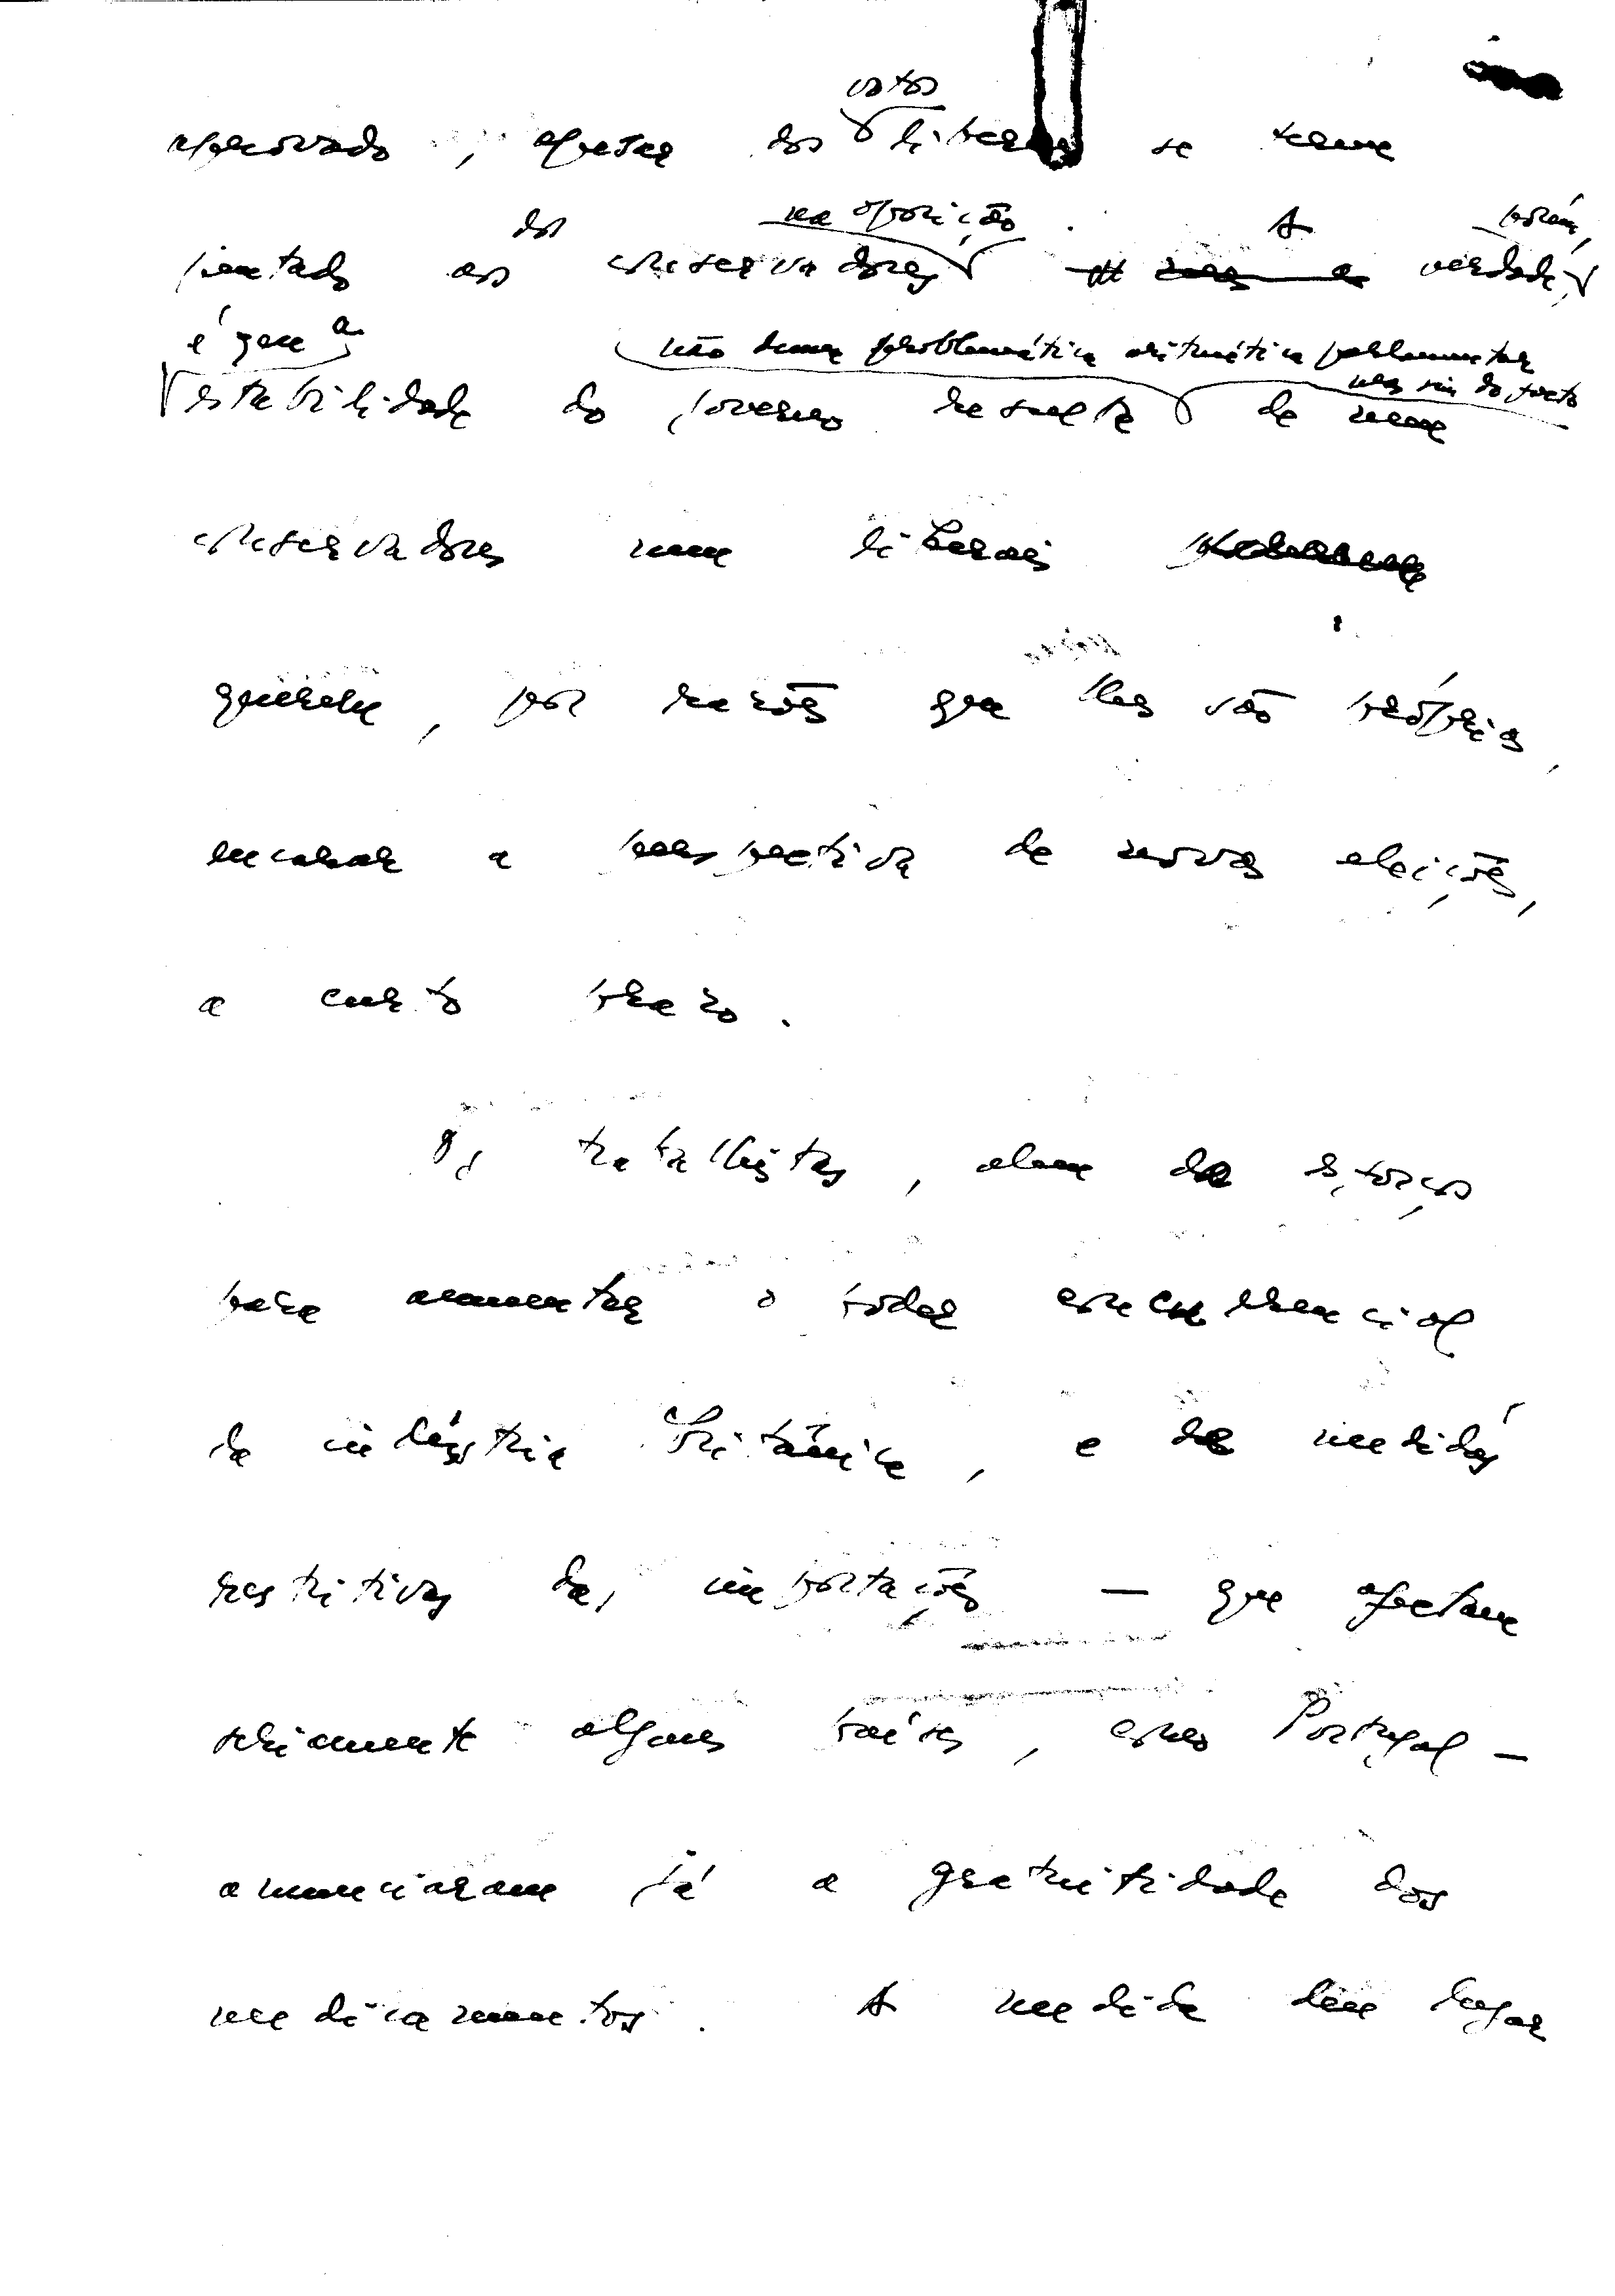 votos
aprovado, apesar dos liberais se terem
dos na oposição. A porém,
juntado aos conservadores verdade,
é que a não duma problemática aritmética parlamentar
mas sim do facto
estabilidade do governo resulta de nem
conservadores nem liberais
quererem, por razões que lhes são próprias,
encarar a perspectiva de novas eleições,
a curto prazo.
Os trabalhistas, além de esforços
para aumentar o poder concorrencial
da indústria britânica, e de medidas
restritivas das importações — que afectam
sèriamente alguns países, como Portugal —
anunciaram já a gratuitidade dos
medicamentos. A medida deu lugar